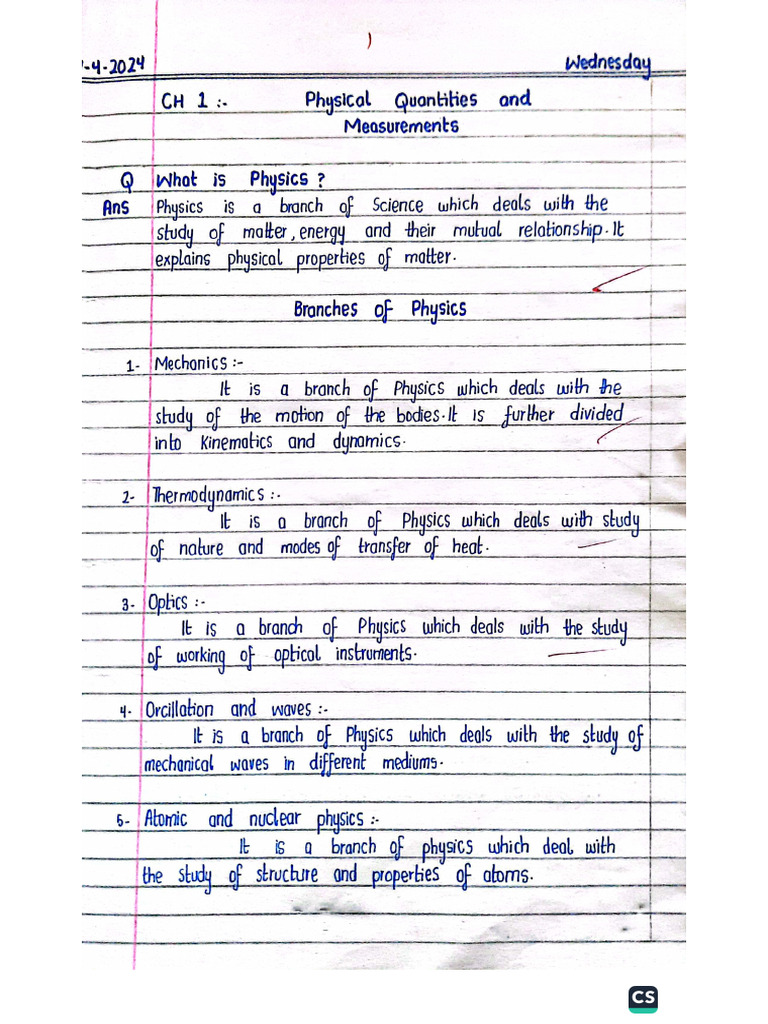 )
-4-2024 Wednesday
CH 1 :- Physical Quantities and
Measurements
Q What is Physics ?
Ans Physics is a branch of Science which deals with the
study of matter, energy and their mutual relationship. It
explains physical properties of matter.
Branches of Physics
1- Mechanics :-
It is a branch of Physics which deals with the
study of the motion of the bodies. It is further divided
into Kinematics and dynamics.
2- Thermodynamics :-
It is a branch of Physics which deals with study
of nature and modes of transfer of heat.
3- Optics :-
It is a branch of Physics which deals with the study
of working of optical instruments.
4- Orcillation and waves :-
It is a branch of Physics which deals with the study of
mechanical waves in different mediums.
5- Atomic and nuclear physics :-
It is a branch of physics which deal with
the study of structure and properties of atoms.
CS